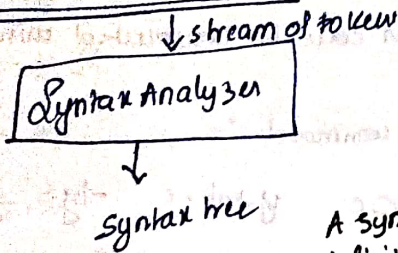 stream of token
Syntax Analyzer
Syntax tree
A syn